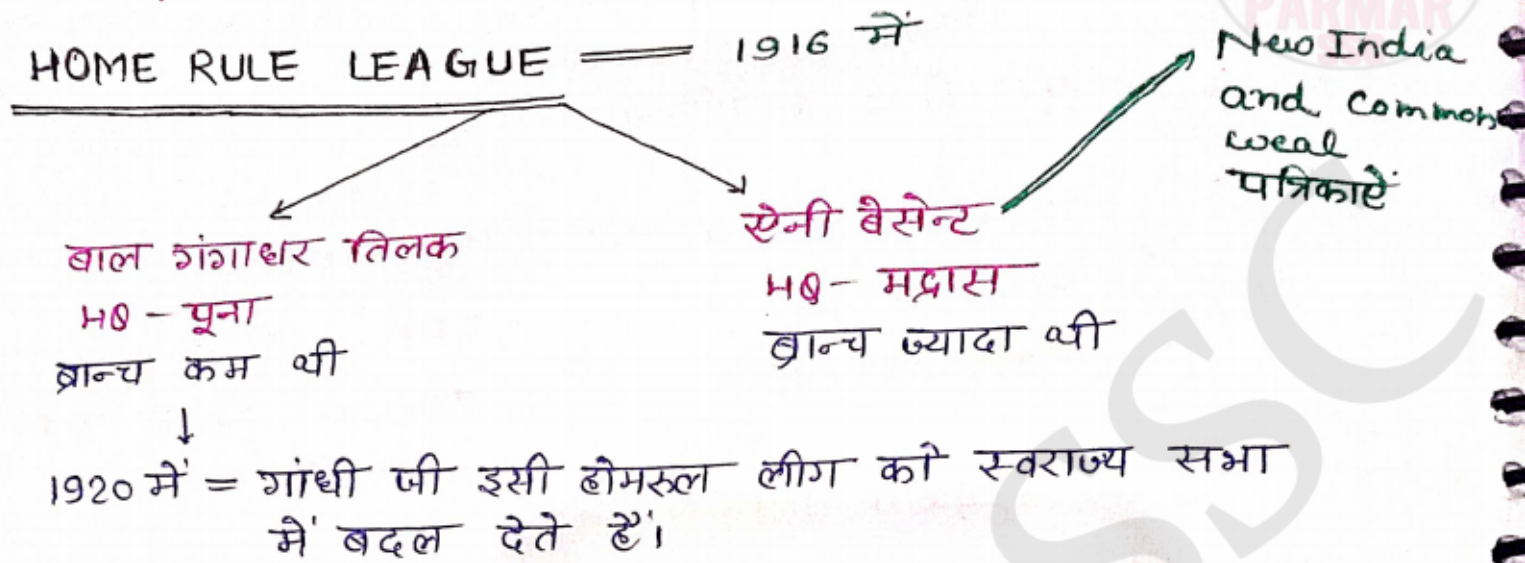 PARMAR
SSC
HOME RULE LEAGUE == 1916 में
New India
and Common
weal
पत्रिकाऐं
बाल गंगाधर तिलक
HQ - पूना
ब्रान्च कम थी
ऐनी बेसेन्ट
HQ - मद्रास
ब्रान्च ज्यादा थी
↓
1920 में = गांधी जी इसी होमरुल लीग को स्वराज्य सभा
में बदल देते हैं।
SSC